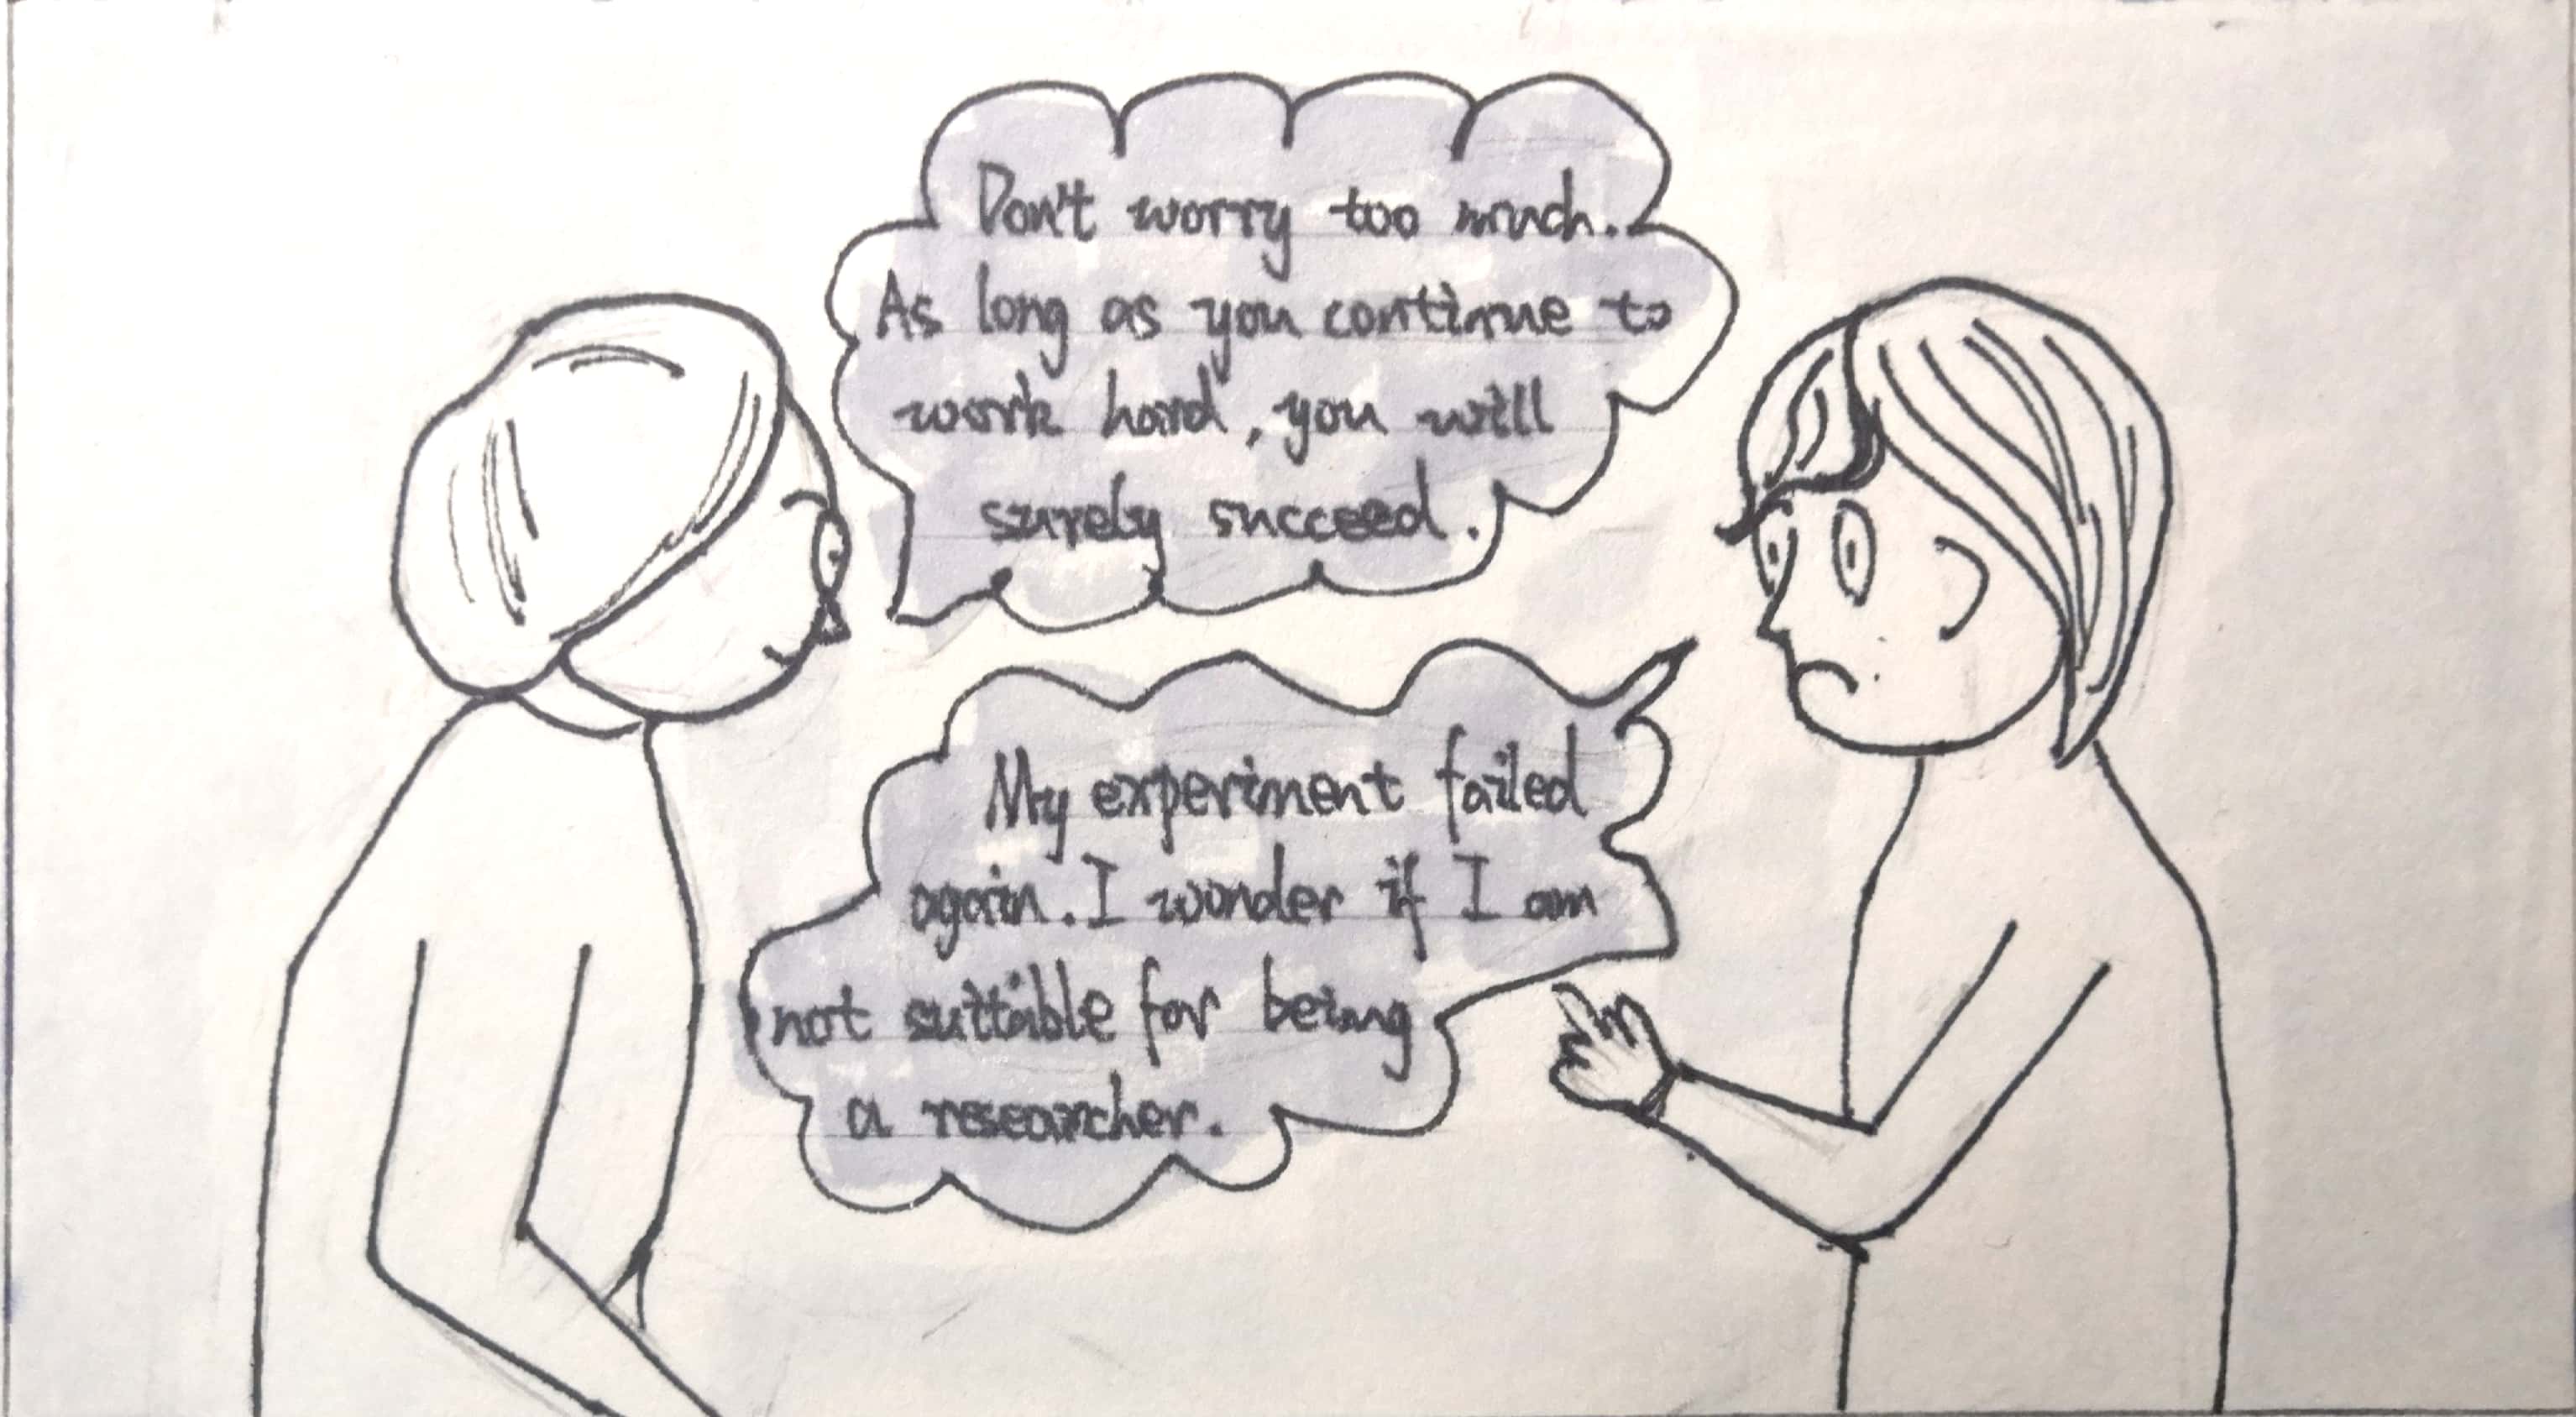 Don't worry too much.
As long as you continue to
work hard, you will
surely succeed.
My experiment failed
again. I wonder if I am
not suitable for being
a researcher.